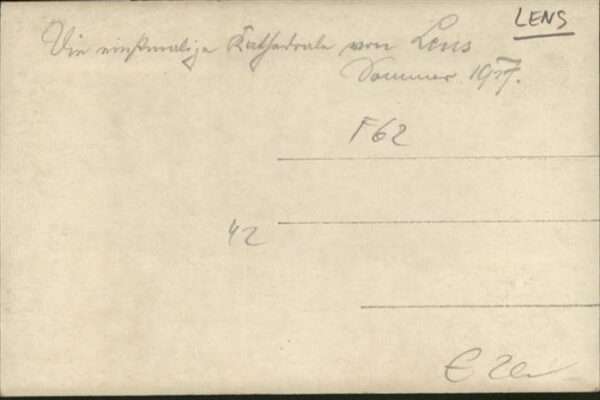 LENS
Die einstmalige Kathedrale von Lens
Sommer 1917.
F62
42
€